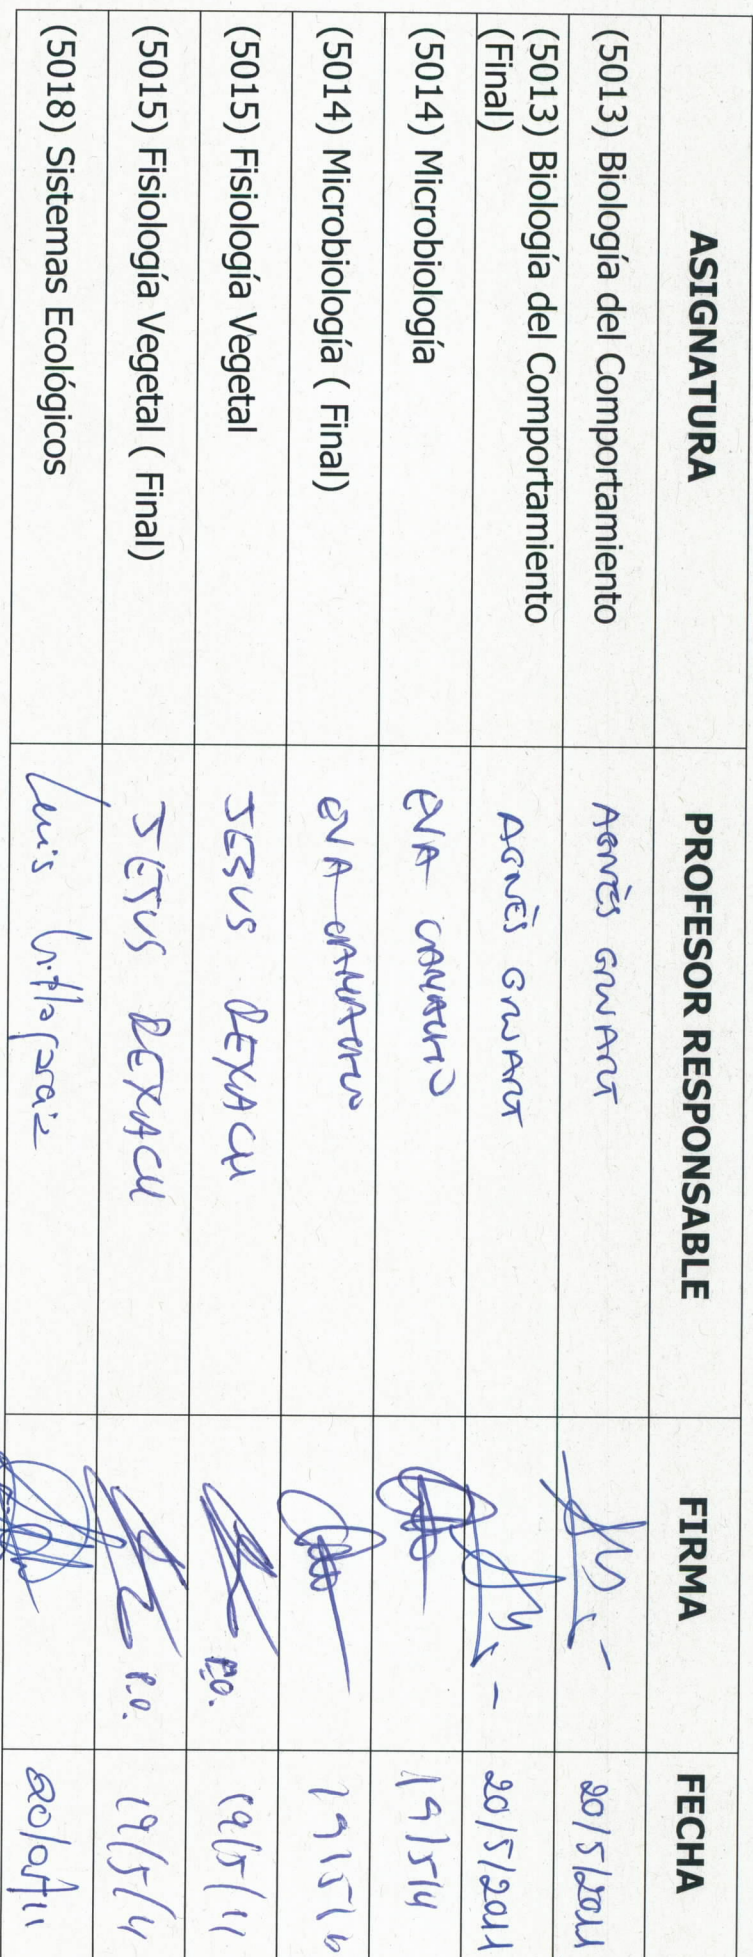 ASIGNATURA PROFESOR RESPONSABLE FIRMA FECHA
(5013) Biología del Comportamiento AGNÈS 20/5/2011
(5013) Biología del Comportamiento
(Final) AGNÈS 20/5/2011
(5014) Microbiología EVA CAMACHO 19/5/11
(5014) Microbiología ( Final) EVA CAMACHO
(5015) Fisiología Vegetal JESUS REXACH P.O. 19/5/11
(5015) Fisiología Vegetal ( Final) JESUS REXACH P.O. 19/5/11
(5018) Sistemas Ecológicos Luis